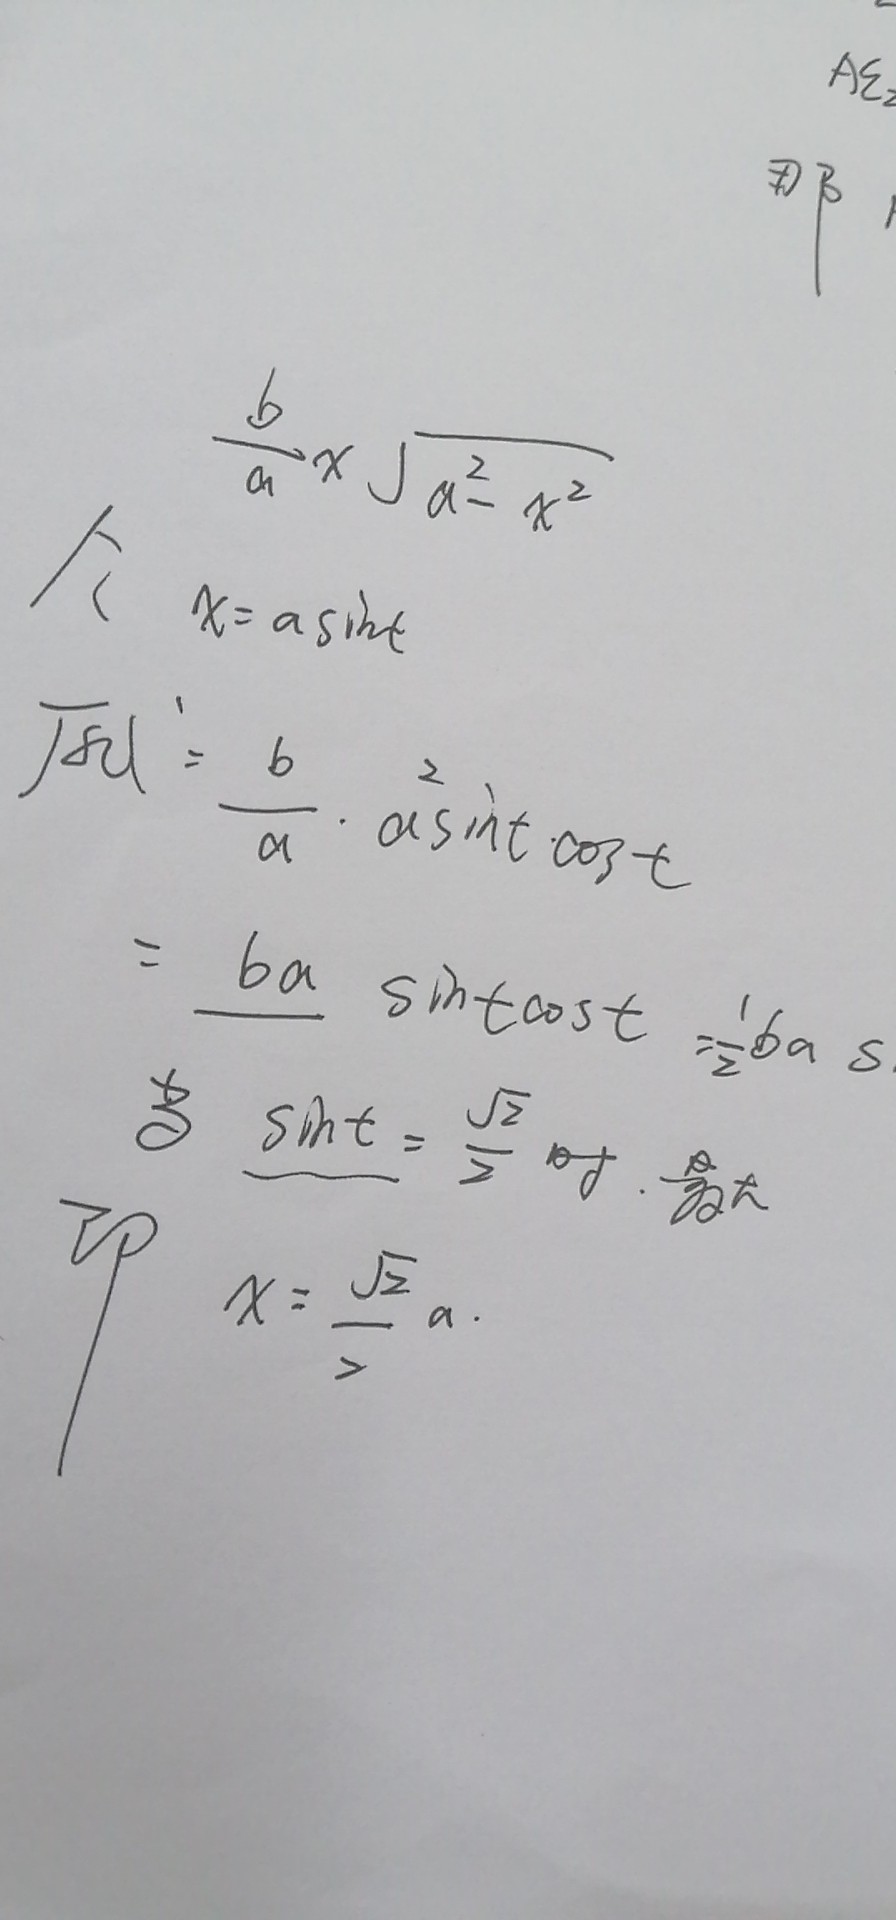 AE₂
即
b/a x √(a² - x²)
令 x = a sin t
原式 = b/a · a² sin t · cos t
= ba sin t cos t = 1/2 ba s
当 sin t = √2/2 时. 最大
即 x = √2/2 a.